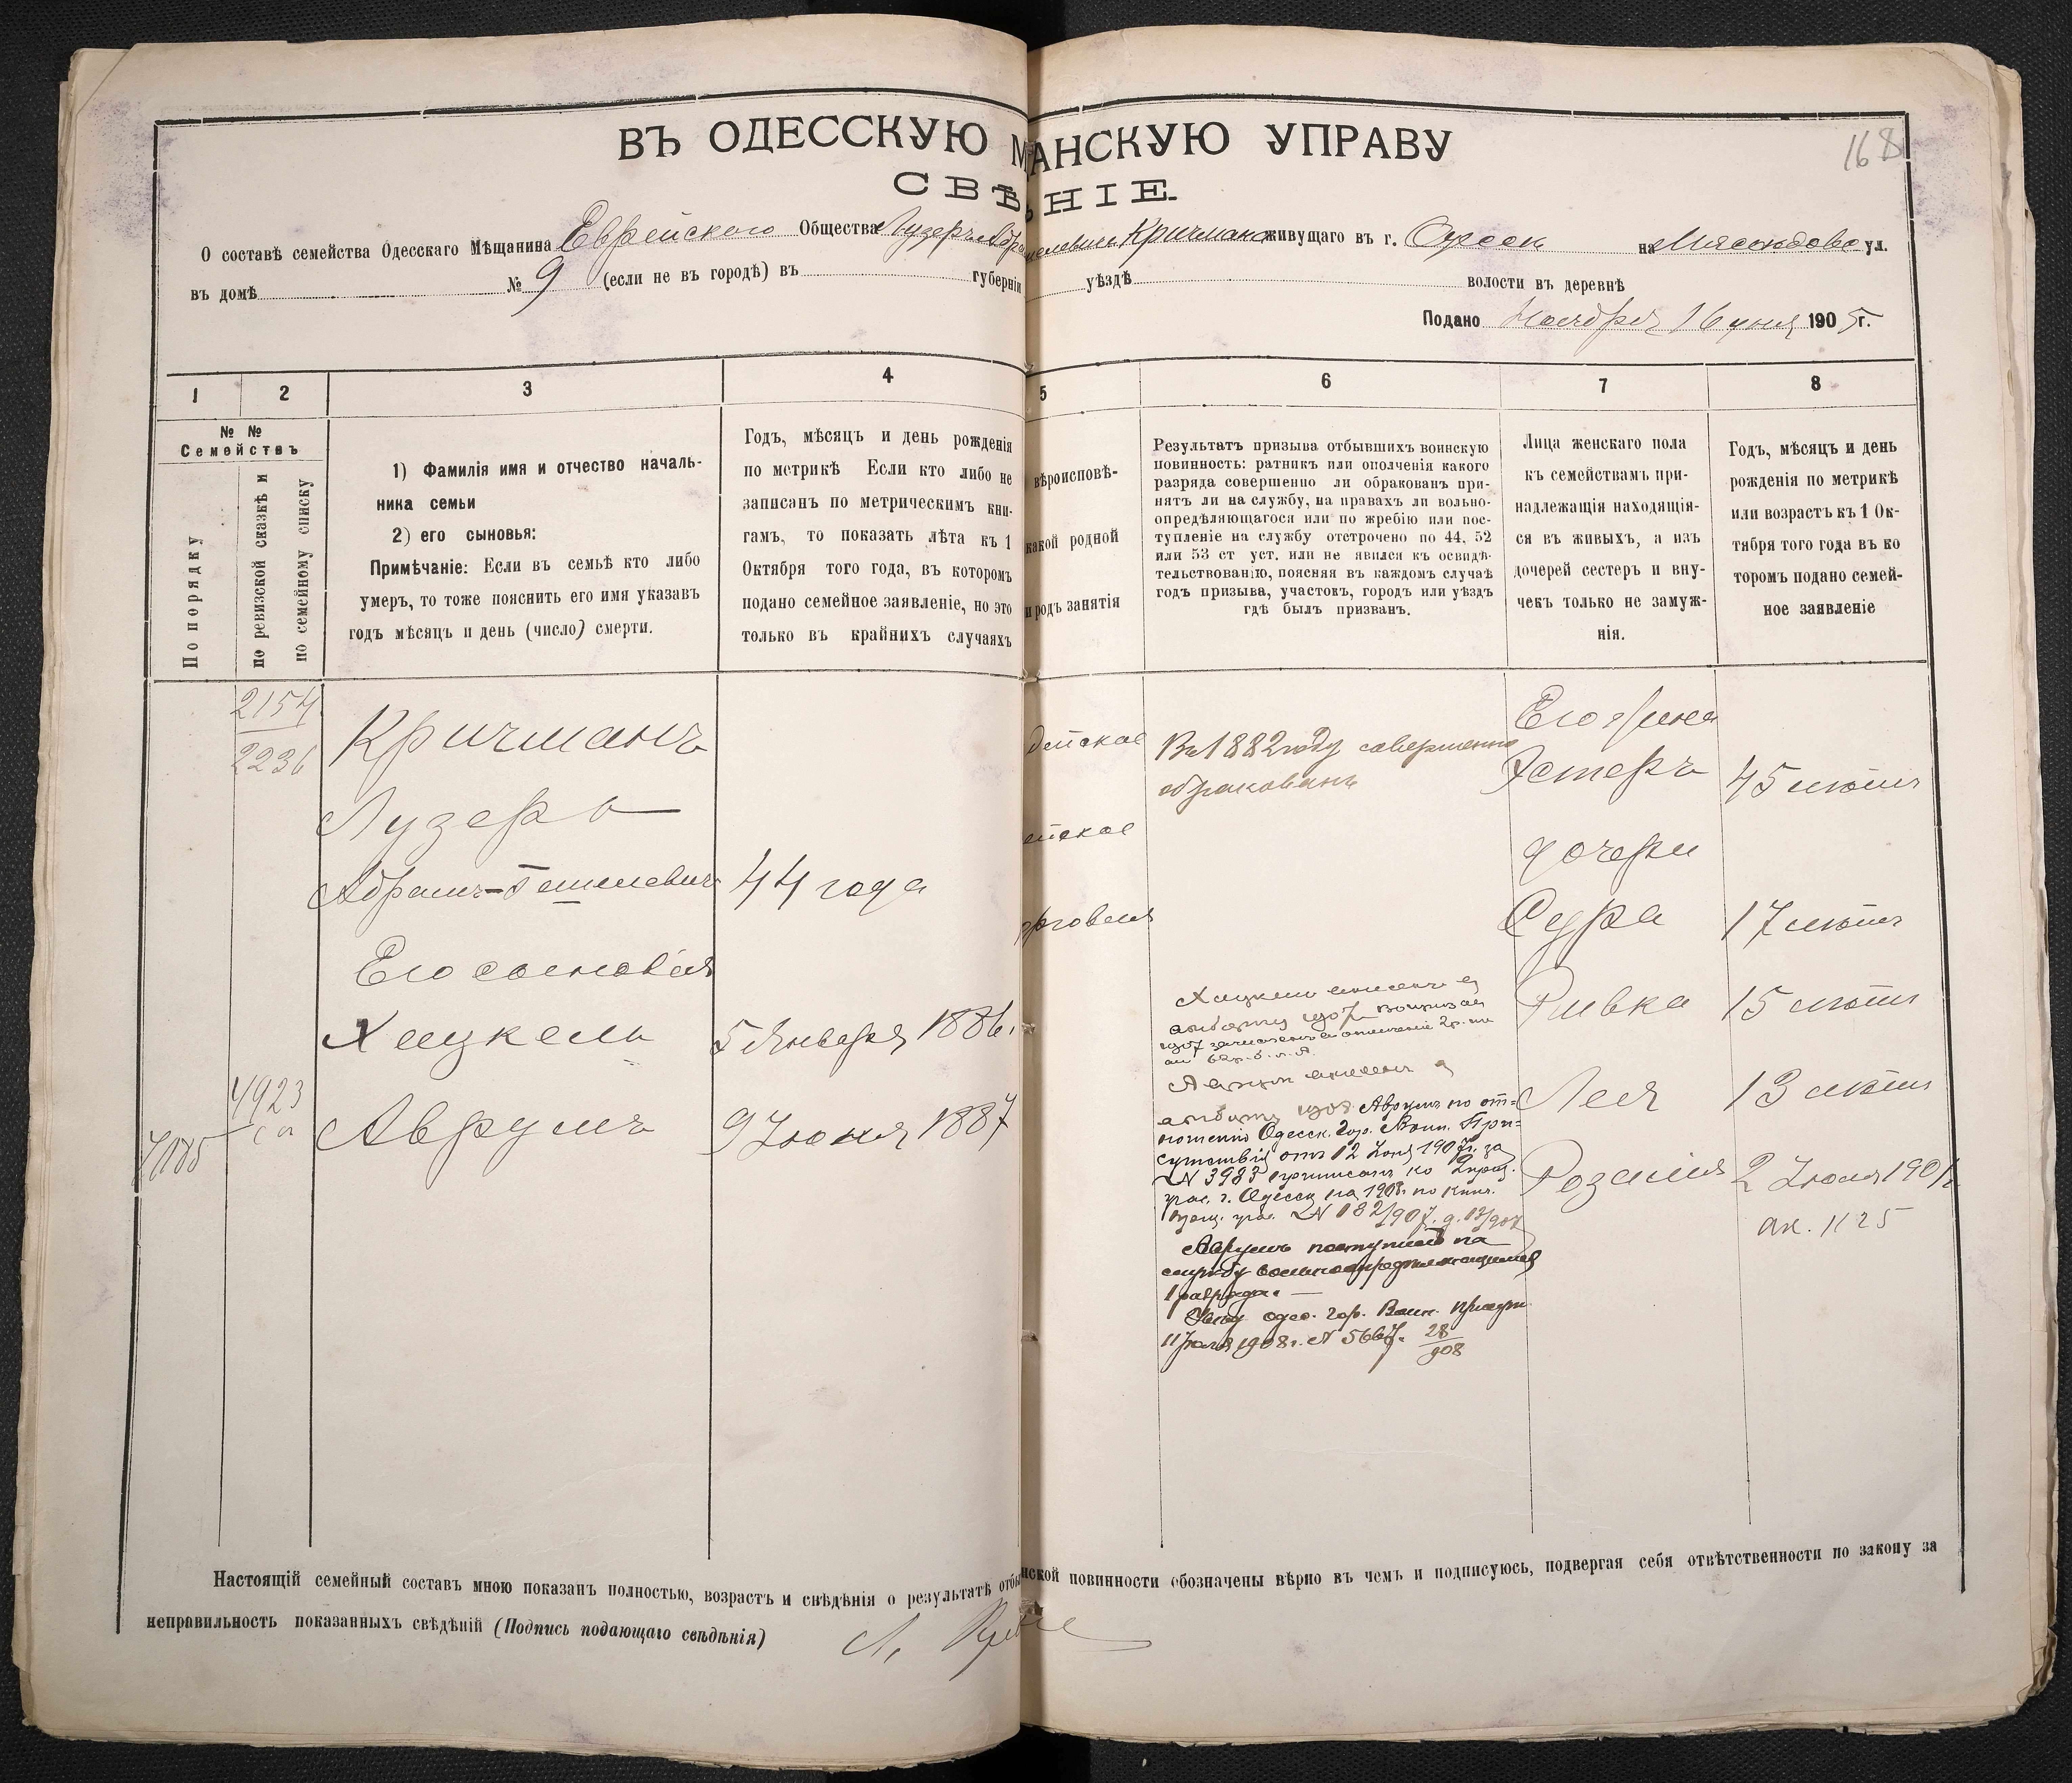 168
ВЪ ОДЕССКУЮ МѢЩАНСКУЮ УПРАВУ
СВѢ НІЕ.
О составѣ семейства Одесскаго Мѣщанина Еврейскаго Общества Лузеръ Абрам Кричмана живущаго въ г. Одессѣ на ул.
въ домѣ № 9 (если не въ городѣ) въ губерніи уѣздѣ волости въ деревнѣ
Подано Ноября 16 дня 1905 г.
1 2 3 4 5 6 7 8
№ №
Семействъ
По порядку
по ревизской сказкѣ и
по семейному списку
1) Фамилія имя и отчество началь-
ника семьи
2) его сыновья:
Примѣчаніе: Если въ семьѣ кто либо
умеръ, то тоже пояснить его имя указавъ
годъ мѣсяцъ и день (число) смерти.
Годъ, мѣсяцъ и день рожденія
по метрикѣ Если кто либо не
записанъ по метрическимъ кни-
гамъ, то показать лѣта къ 1
Октября того года, въ которомъ
подано семейное заявленіе, но это
только въ крайнихъ случаяхъ
вѣроисповѣ-
какой родной
и родъ занятія
Результатъ призыва отбывшихъ воинскую
повинность: ратникъ или ополченія какого
разряда совершенно ли обракованъ при-
нятъ ли на службу, на правахъ ли вольно-
опредѣляющагося или по жребію или пос-
тупленіе на службу отстрочено по 44, 52
или 53 ст уст. или не явился къ освидѣ-
тельствованію, поясняя въ каждомъ случаѣ
годъ призыва, участокъ, городъ или уѣздъ
гдѣ былъ призванъ.
Лица женскаго пола
къ семействамъ при-
надлежащія находящія-
ся въ живыхъ, а изъ
дочерей сестеръ и вну-
чекъ только не замуж-
нія.
Годъ, мѣсяцъ и день
рожденія по метрикѣ
или возрастъ къ 1 Ок-
тября того года въ ко
торомъ подано семей-
ное заявленіе
2154
2236
Кричманъ
Лузеръ
Абрамъ-Гешелевичъ 44 года
Его сыновья
Хацкель 5 Января 1886.
4923
7185
Аврумъ 9 Іюня 1887
дейское
ейское
орговля
Въ 1882 году совершенно
обракованъ
Аврумъ по от-
ношенію Одесск. Гор. Воин. При-
сутствія отъ 12 Іюня 1907 г. за
№ 3983 приписанъ ко 2 приз.
учас. г. Одессы на 1908 г. по книг.
приз. учас. № 182/907. д. 17/907
Аврумъ поступилъ на
службу вольноопредѣляющимся
1 разряда. —
Увѣд. одес. гор. Воин. присут.
11 Іюля 1908 г. № 5667. 28/908
Его жена
Эстеръ 45 лѣтъ
дочери
Сура 17 лѣтъ
Ривка 15 лѣтъ
Лея 13 лѣтъ
Розалія 2 Іюля 1901
ак. 1125
Настоящій семейный составъ мною показанъ полностью, возрастъ и свѣдѣнія о результатѣ отбы нской повинности обозначены вѣрно въ чемъ и подписуюсь, подвергая себя отвѣтственности по закону за
неправильность показанныхъ свѣдѣній (Подпись подающаго свѣдѣнія)
Л.